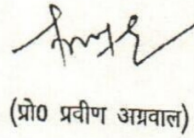 (प्रो0 प्रवीण अग्रवाल)